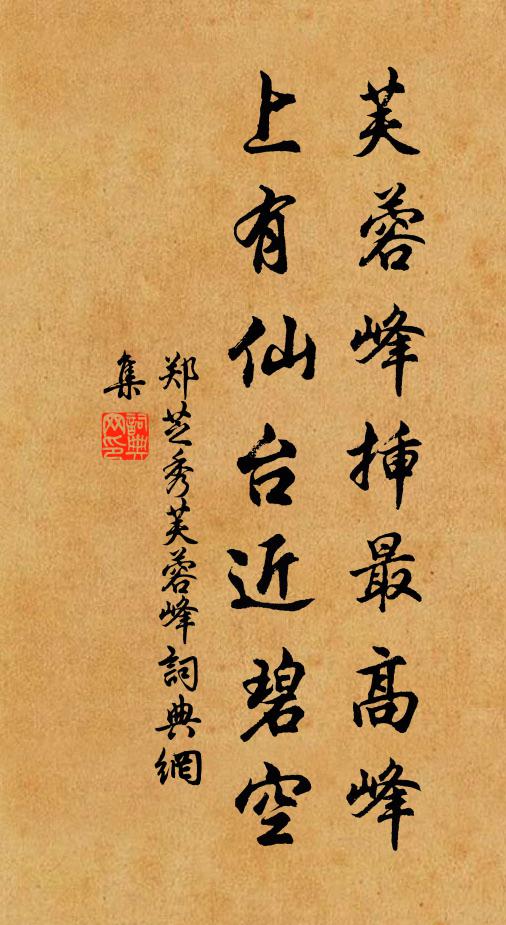 芙蓉峰揷最高峰
上有仙台近碧空
郑芝秀芙蓉峰詞典網
集
詞典網印